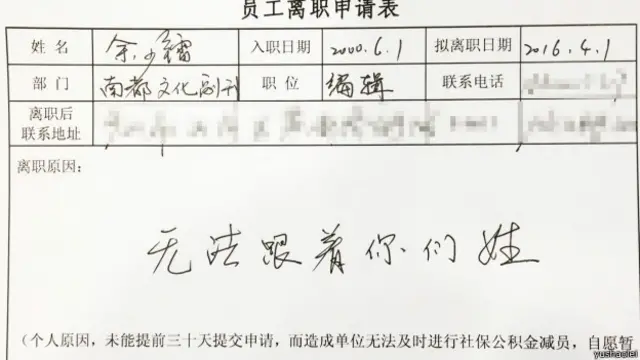 员工离职申请表
姓名 余少镭 入职日期 2000.6.1 拟离职日期 2016.4.1
部门 南都文化副刊 职位 编辑 联系电话
离职后
联系地址
离职原因:
无法跟着你们姓
(个人原因,未能提前三十天提交申请,而造成单位无法及时进行社保公积金减员,自愿暂
yushaolei